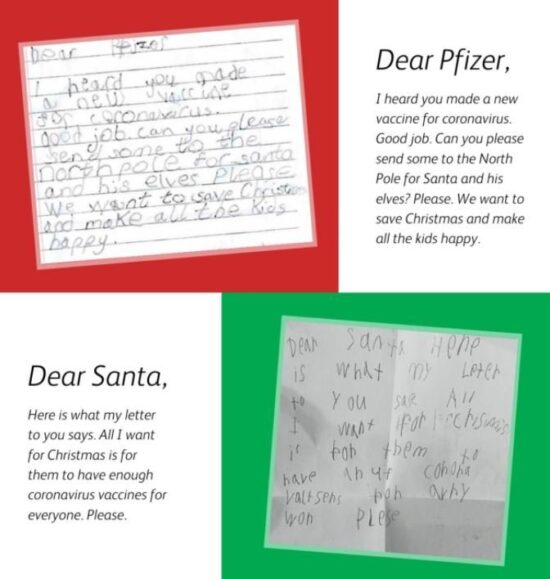 Dear Pfizer
I heard you made
a new vaccine
for coronavirus.
Good job. can you please
send some to the
north pole for santa
and his elves Please
We want to save Christmas
and make all the Kids
happy.
Dear Pfizer,
I heard you made a new
vaccine for coronavirus.
Good job. Can you please
send some to the North
Pole for Santa and his
elves? Please. We want to
save Christmas and make
all the kids happy.
Dear Santa,
Here is what my letter
to you says. All I want
for Christmas is for
them to have enough
coronavirus vaccines for
everyone. Please.
Dear Santa Here
is what my Leter
to you sas All
I want for
is for them to
have anuf corona
valtsens for avry
won Plese